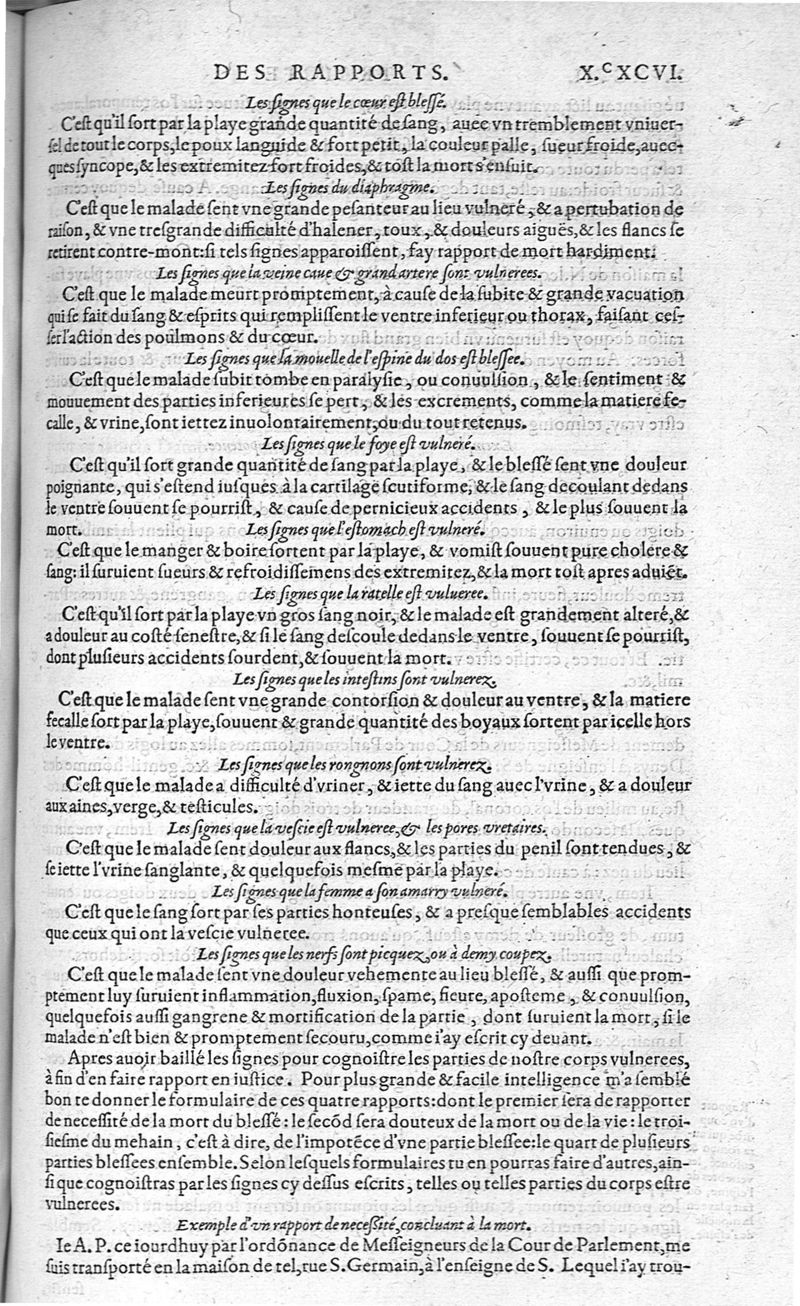 DES RAPPORTS. X.ᶜXCVI.
Les ſignes que le cœur eſt bleſſé.
C'eſt qu'il ſort par la playe grande quantité de ſang, auec vn tremblement vniuer-
ſel de tout le corps, le poux languide & fort petit, la couleur palle, ſueur froide, auec-
ques ſyncope, & les extremitez fort froides, & toſt la mort s'enſuit.
Les ſignes du diaphragme.
C'eſt que le malade ſent vne grande peſanteur au lieu vulneré, & a pertubation de
raiſon, & vne treſgrande difficulté d'halener, toux, & douleurs aiguës, & les flancs ſe
retirent contre-mont: ſi tels ſignes apparoiſſent, fay rapport de mort hardiment.
Les ſignes que la veine caue & grand artere ſont vulnerees.
C'eſt que le malade meurt promptement, à cauſe de la ſubite & grande vacuation
qui ſe fait du ſang & eſprits qui rempliſſent le ventre inferieur ou thorax, faiſant ceſ-
ſer l'action des poulmons & du cœur.
Les ſignes que la mouelle de l'eſpine du dos eſt bleſſee.
C'eſt que le malade ſubit tombe en paralyſie, ou conuulſion, & le ſentiment &
mouuement des parties inferieures ſe pert, & les excrements, comme la matiere fe-
calle, & vrine, ſont iettez inuolontairement, ou du tout retenus.
Les ſignes que le foye eſt vulneré.
C'eſt qu'il ſort grande quantité de ſang par la playe, & le bleſſé ſent vne douleur
poignante, qui s'eſtend iuſques à la cartilage ſcutiforme, & le ſang decoulant dedans
le ventre ſouuent ſe pourriſt, & cauſe de pernicieux accidents, & le plus ſouuent la
mort. Les ſignes que l'eſtomach eſt vulneré.
C'eſt que le manger & boire ſortent par la playe, & vomiſt ſouuent pure cholere &
ſang: il ſuruient ſueurs & refroidiſſemens des extremitez, & la mort toſt apres aduiēt.
Les ſignes que la ratelle eſt vulueree.
C'eſt qu'il ſort par la playe vn gros ſang noir, & le malade eſt grandement alteré, &
a douleur au coſté ſeneſtre, & ſi le ſang deſcoule dedans le ventre, ſouuent ſe pourriſt,
dont pluſieurs accidents ſourdent, & ſouuent la mort.
Les ſignes que les inteſtins ſont vulnerez.
C'eſt que le malade ſent vne grande contorſion & douleur au ventre, & la matiere
fecalle ſort par la playe, ſouuent & grande quantité des boyaux ſortent par icelle hors
le ventre.
Les ſignes que les rongnons ſont vulnerez.
C'eſt que le malade a difficulté d'vriner, & iette du ſang auec l'vrine, & a douleur
aux aines, verge, & teſticules.
Les ſignes que la veſcie eſt vulneree, & les pores vretaires.
C'eſt que le malade ſent douleur aux flancs, & les parties du penil ſont tendues, &
ſe iette l'vrine ſanglante, & quelquefois meſme par la playe.
Les ſignes que la femme a ſon amarry vulneré.
C'eſt que le ſang ſort par ſes parties honteuſes, & a preſque ſemblables accidents
que ceux qui ont la veſcie vulneree.
Les ſignes que les nerfs ſont picquez, ou à demy coupez.
C'eſt que le malade ſent vne douleur vehemente au lieu bleſſé, & auſſi que prom-
ptement luy ſuruient inflammation, fluxion, ſpame, fieure, apoſteme, & conuulſion,
quelquefois auſſi gangrene & mortification de la partie, dont ſuruient la mort, ſi le
malade n'eſt bien & promptement ſecouru, comme i'ay eſcrit cy deuant.
Apres auoir baillé les ſignes pour cognoiſtre les parties de noſtre corps vulnerees,
à fin d'en faire rapport en iuſtice. Pour plus grande & facile intelligence m'a ſemblé
bon te donner le formulaire de ces quatre rapports: dont le premier ſera de rapporter
de neceſſité de la mort du bleſſé: le ſecōd ſera douteux de la mort ou de la vie: le troi-
ſieſme du mehain, c'eſt à dire, de l'impotēce d'vne partie bleſſee: le quart de pluſieurs
parties bleſſees enſemble. Selon leſquels formulaires tu en pourras faire d'autres, ain-
ſi que cognoiſtras par les ſignes cy deſſus eſcrits, telles ou telles parties du corps eſtre
vulnerees.
Exemple d'vn rapport de neceſſité, concluant à la mort.
Ie A. P. ce iourdhuy par l'ordōnance de Meſſeigneurs de la Cour de Parlement, me
ſuis tranſporté en la maiſon de tel, rue S. Germain, à l'enſeigne de S. Lequel i'ay trou-